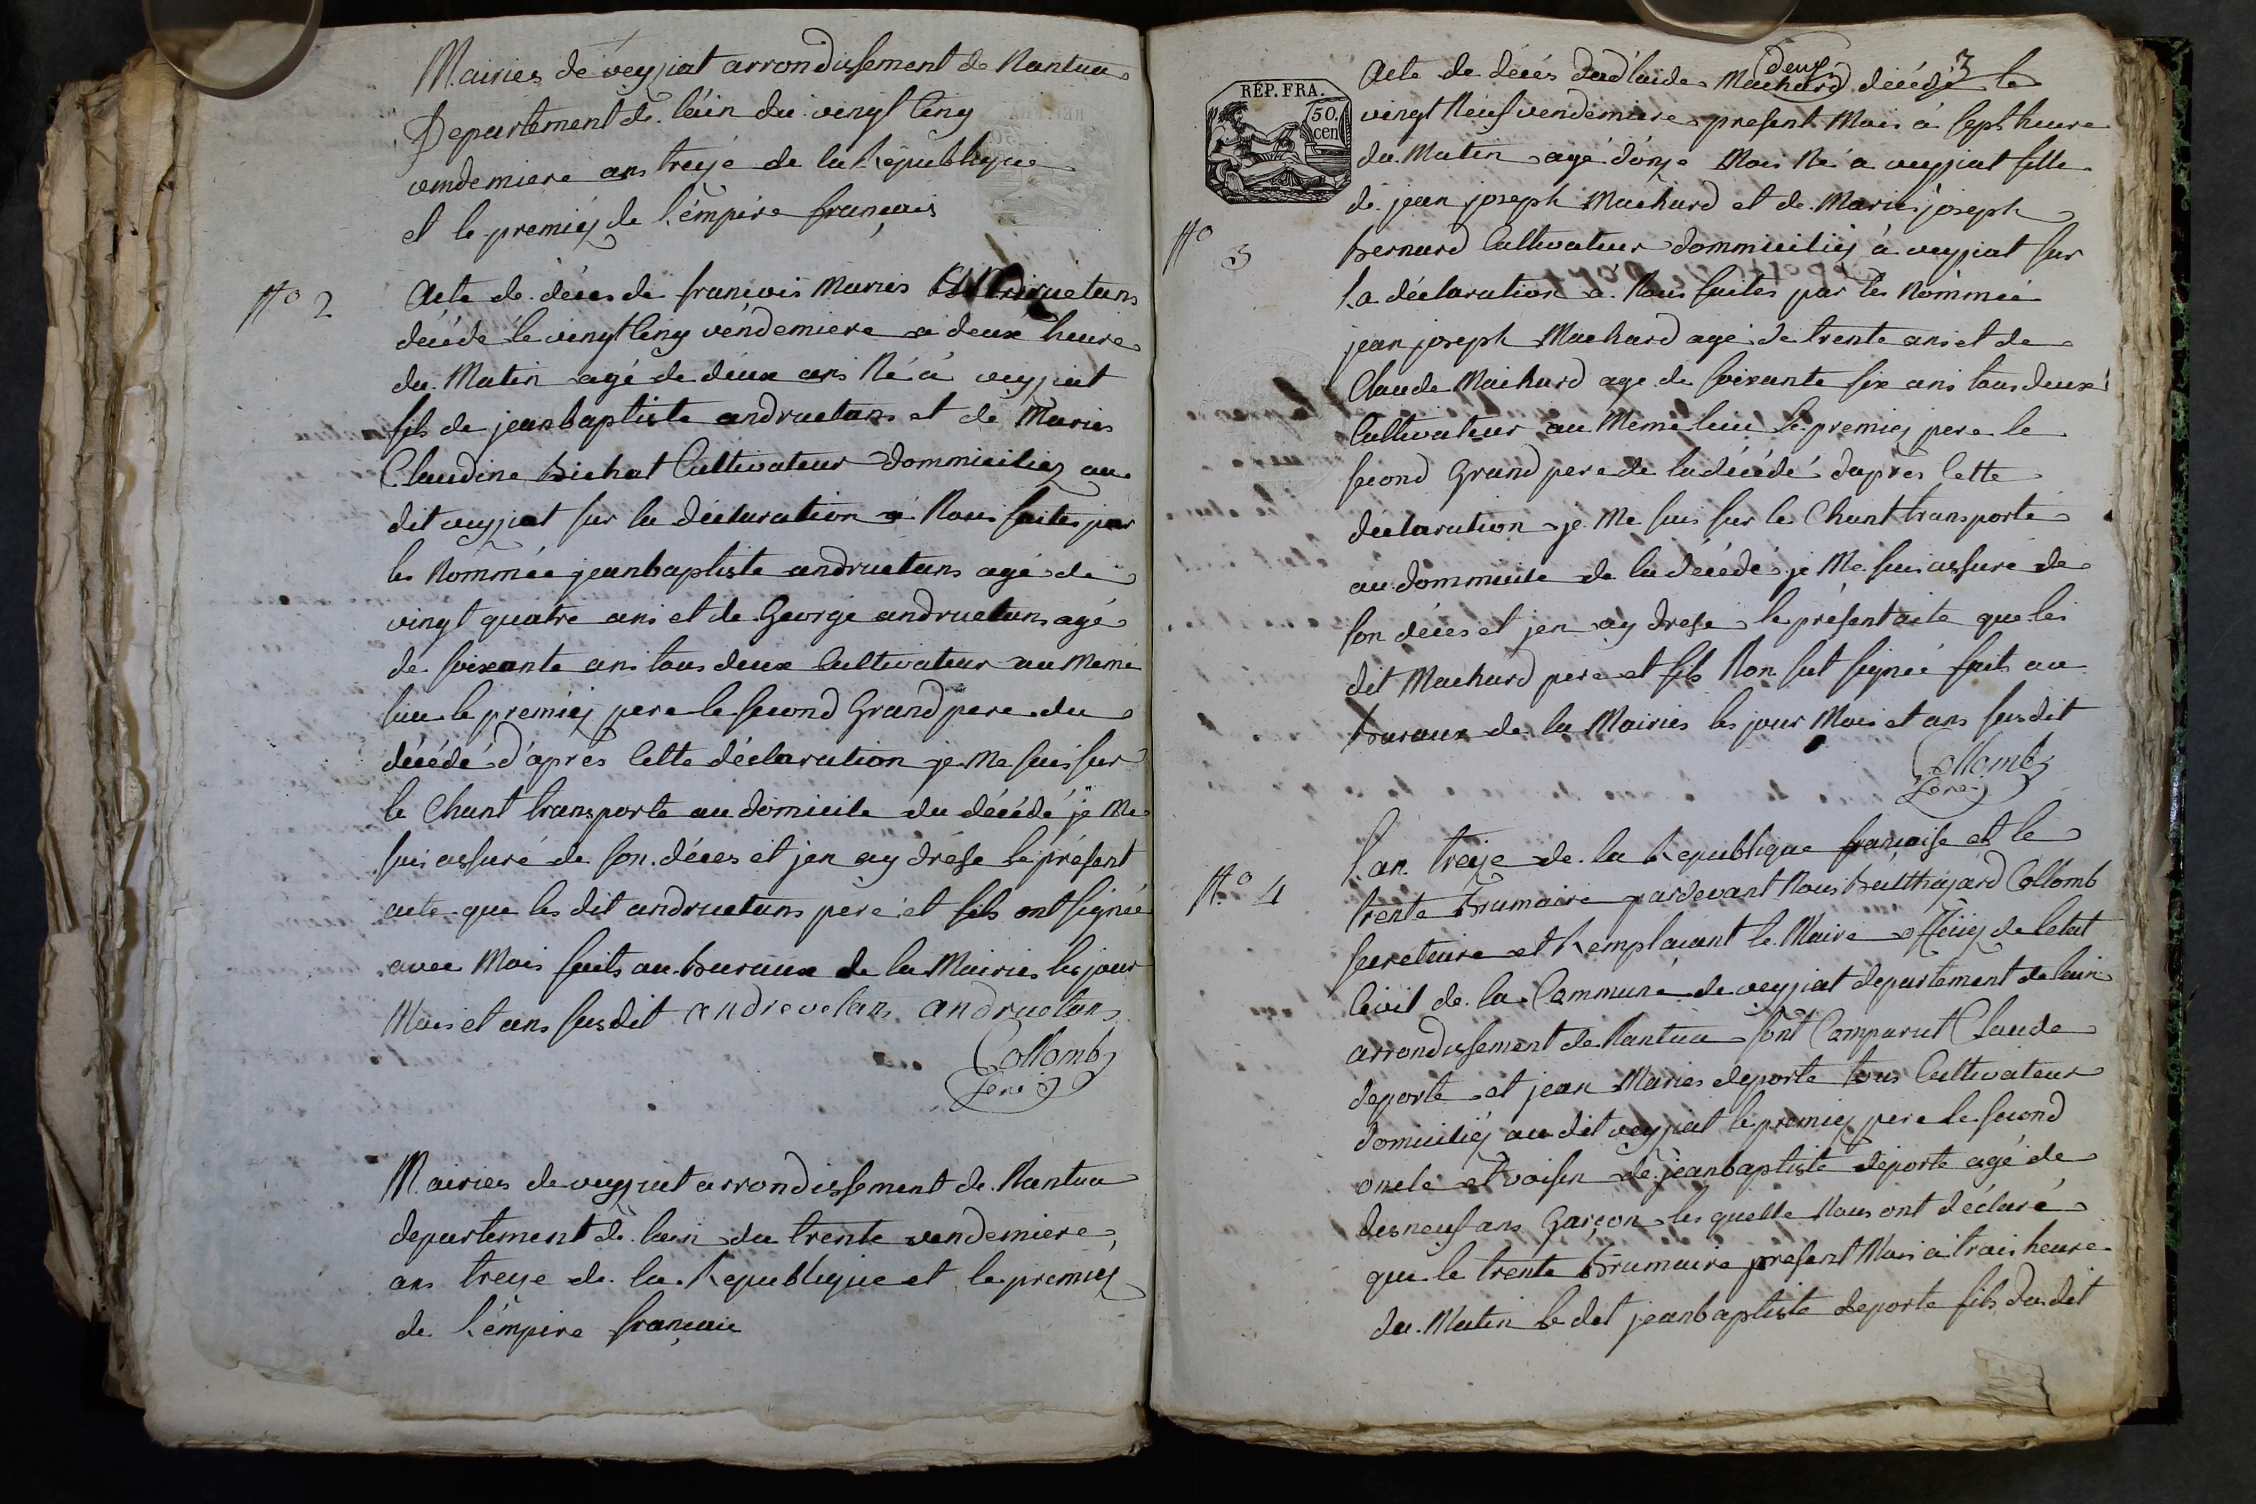 Mairies de veyziat arrondissement de Nantua
Departement de l'ain du vingt cinq
vendemiere ans treize de la République
et le premiéz de l'émpire français
N.o 2
Acte de déces de françois Maries andruetans
décédé le vingt cinq véndemiere a deux heure
du Matin agé de déux ans Né à veyziat
fils de jeanbaptiste andruetans et de Maries
Claudine Bichat Cultivateur dommiciliez au
dit veyziat sur la déclaration a Nous faites par
les Nommée jeanbaptiste andruetans agé de
vingt quatre ans et de George andruetans agé
de soixante ans tous deux Cultivateur au Méme
lieu le premiéz pere le second Grand pere du
décédé d'aprés Cette déclaration je Me suis sur
le Chant transporte au domicile du décédé je Me
suis assuré de son déces et jen ay drésé le présent
acte que les dit andruetans pere et fils ont signée
avec Mois faits au Buraux de la Mairies les jour
Mois et ans susdit andrevetans andruetans
Collomb
Mairies de veyziat arrondissement de Nantua
departement de lain du trente vendemiere
ans treize de la République et le premiez
de l'émpire français
deux
3
RÉP. FRA.
50 cen
Acte de décés dadlaide Machard décédé le
vingt Neuf vendémiere present Mois á sept heure
du Matin agé d'onze Mois Né a veyziat fille
de jean joseph Machard et de Maries joseph
N.o 3
Bernard Cultivateur dommiciliéz à veyziat sur
la déclaration a Nous faites par les Nommée
jean joseph Machard agé de trente ans et de
Claude Machard age de soixante six ans tous deux
Cultivateur au Méme lieu le premiez pere le
second Grand pere de la décédé daprés Cette
déclaration je Me suis sur le Chant transporté
au dommicile de la décédé je Me suis assuré de
son déces et jen ay drese le présent acte que les
dit Machard pere et fils Non sut signée fait au
Buraux de la Mairies les jour Mois et ans susdit
Collomb
N.o 4
l'an treize de la Republique française et le
trente Brumaire pardevant Nous Collomb
secretaire et Remplaçant le Maire officiez de létat
Civil de la Commune de veyziat departement de lain
arrondissement de Nantua sont Comparut Claude
deporte et jean Maries deporte tous Cultivateur
domiciliéz au dit veyziat le premiez pere le second
oncle et voisin de jeanbaptiste déporte agé de
disneuf ans Garçon les quelle Nous ont déclaré
que le trente Brumaire présent Mois a trois heure
du Matin le dit jeanbaptiste deporte fils du dit